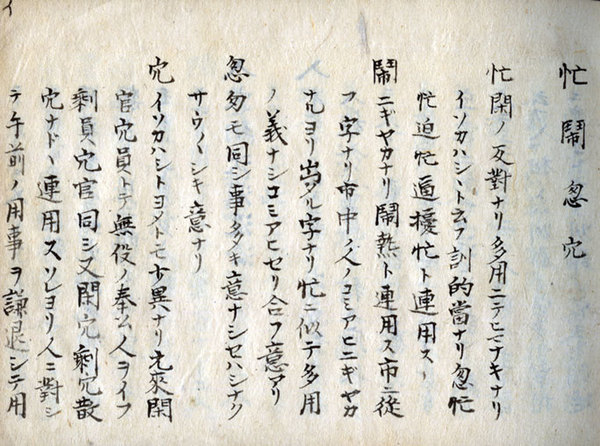 忙鬧怱宂
忙閑ノ反對ナリ多用ニテヒマナキナリ
イソカハシト云フ訓的當ナリ怱忙
忙迫忙遽擾忙ト連用ス
鬧ニギヤカナリ鬧熱ト連用ス市ニ從
フ字ナリ市中ノ人ノコミアヒニギヤカ
ナルヨリ出タル字ナリ忙ニ似テ多用
ノ義ナシコミアヒセリ合フ意アリ
怱匆モ同シ事多キ意ナシセハシナク
サウ〳〵シキ意ナリ
宂イソカハシトヨメトモ少異ナリ元來閑
官宂員トテ無役ノ奉公人ヲイフ
剩員宂官同シ又閑宂剩宂散
宂ナドヽ連用スソレヨリ人ニ對シ
テ午前ノ用事ヲ謙退シテ用